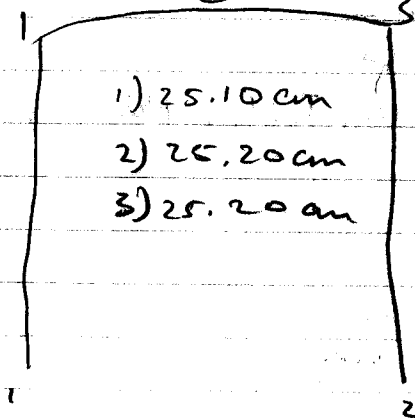 1 3
1) 25.10 cm
2) 25.20 cm
3) 25.20 cm
1 2